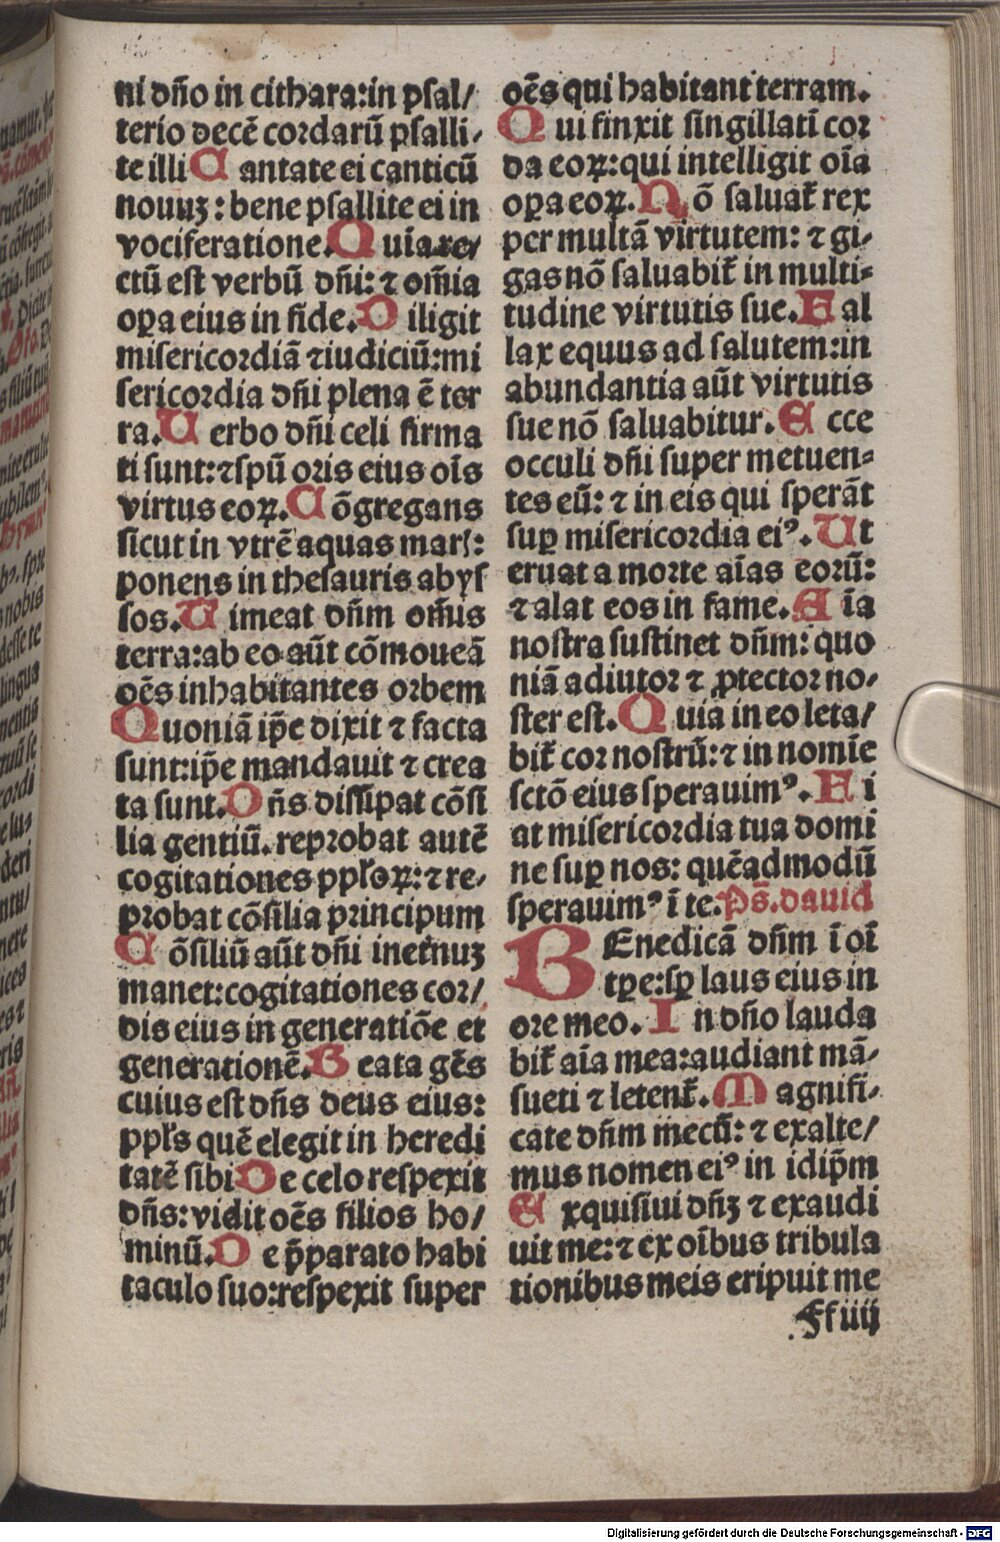 ni dño in cithara:in psal/
terio decē cordarū psalli/
te illi Cantate ei canticū
nouuʒ: bene psallite ei in
vociferatione.Quia re/
ctū est verbū dñi: ⁊ om̄ia
oꝑa eius in fide.Diligit
misericordiā ⁊iudiciū:mi
sericordia dñi plena ē ter
ra.Uerbo dñi celi firma
ti sunt:⁊spū oris eius oīs
virtus eoꝝ.Cōgregans
sicut in vtrē aquas maris:
ponens in thesauris abys
sos.Timeat dñm om̄is
terra:ab eo aūt cōmoueā
oēs inhabitantes orbem
Quoniā ip̄e dixit ⁊ facta
sunt:ip̄e mandauit ⁊ crea
ta sunt.Dñs dissipat cōsi
lia gentiū.reprobat autē
cogitationes pploꝝ:⁊ re/
probat cōsilia principum
Cōsiliū aūt dñi inet̄nuʒ
manet:cogitationes cor/
dis eius in generatiōe et
generationē.Beata gēs
cuius est dñs deus eius:
ppl's quē elegit in heredi
tatē sibi De celo respexit
dñs:vidit oēs filios ho/
minū.De p̄parato habi
taculo suo:respexit super
oēs qui habitant terram.
Qui finxit singillatī cor
da eoꝝ:qui intelligit oīa
oꝑa eoꝝ.Nō saluat̄ rex
per multā virtutem: ⁊ gi/
gas nō saluabit̄ in multi=
tudine virtutis sue.Fal
lax equus ad salutem:in
abundantia aūt virtutis
sue nō saluabitur.Ecce
occuli dñi super metuen=
tes eū: ⁊ in eis qui sperāt
suꝑ misericordia eiꝰ.Ut
eruat a morte aīas eorū:
⁊ alat eos in fame.Aīa
nostra sustinet dñm: quo
niā adiutor ⁊ ꝓtector no/
ster est.Quia in eo leta/
bit̄ cor nostrū:⁊ in nomīe
sctō eius sperauimꝰ.Fi
at misericordia tua domi
ne suꝑ nos: quēadmodū
sperauimꝰ ī te.Ps̄.dauid
BEnedicā dñm ī oī
tꝑe:sꝑ laus eius in
ore meo.In dño lauda
bit̄ aīa mea:audiant mā/
sueti ⁊ letent̄.Magnifi/
cate dñm mecū: ⁊ exalte/
mus nomen eiꝰ in idip̄m
Exquisiui dñʒ ⁊ exaudi
uit me:⁊ ex oībus tribula
tionibus meis eripuit me
Ff iiij
Digitalisierung gefördert durch die Deutsche Forschungsgemeinschaft - DFG